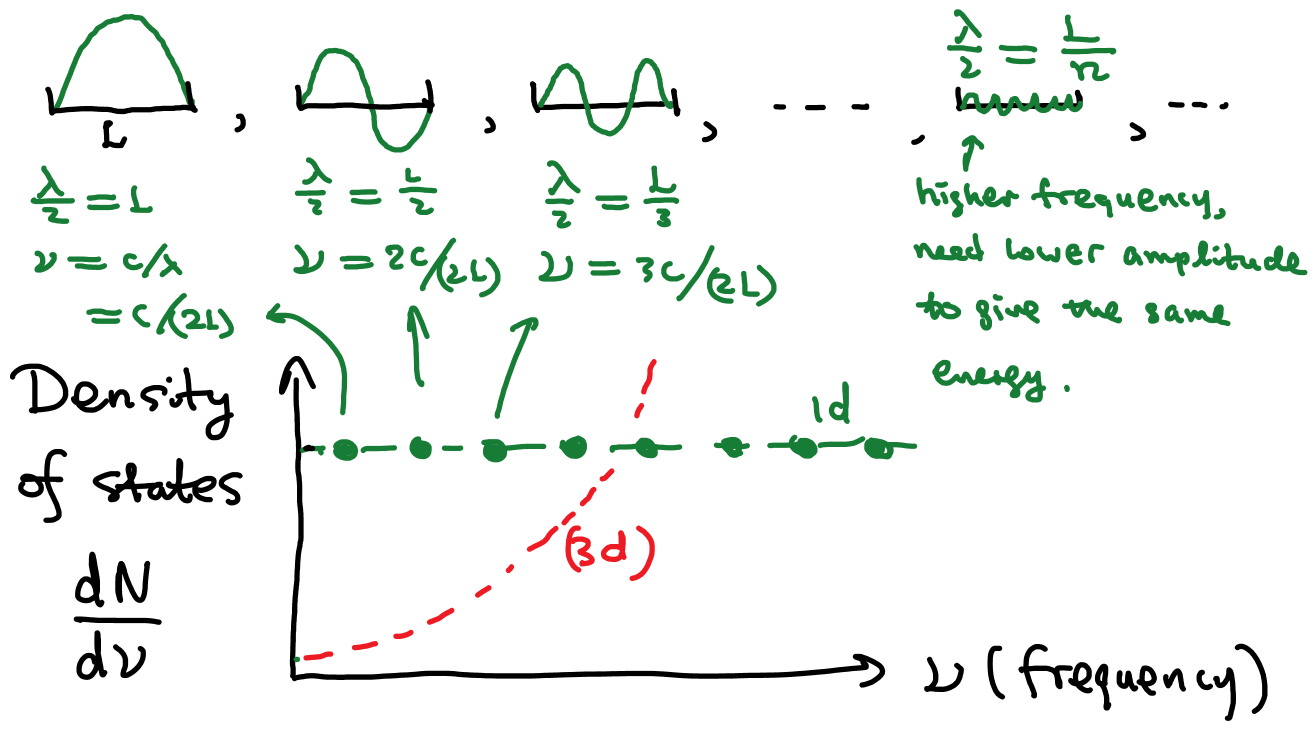 L , , , - - - - , , - - -
λ/2 = L
ν = c/λ
= c/(2L)
λ/2 = L/2
ν = 2c/(2L)
λ/2 = L/3
ν = 3c/(2L)
λ/2 = L/n
higher frequency,
need lower amplitude
to give the same
energy.
Density
of states
dN/dν
1d
(3d)
ν (frequency)